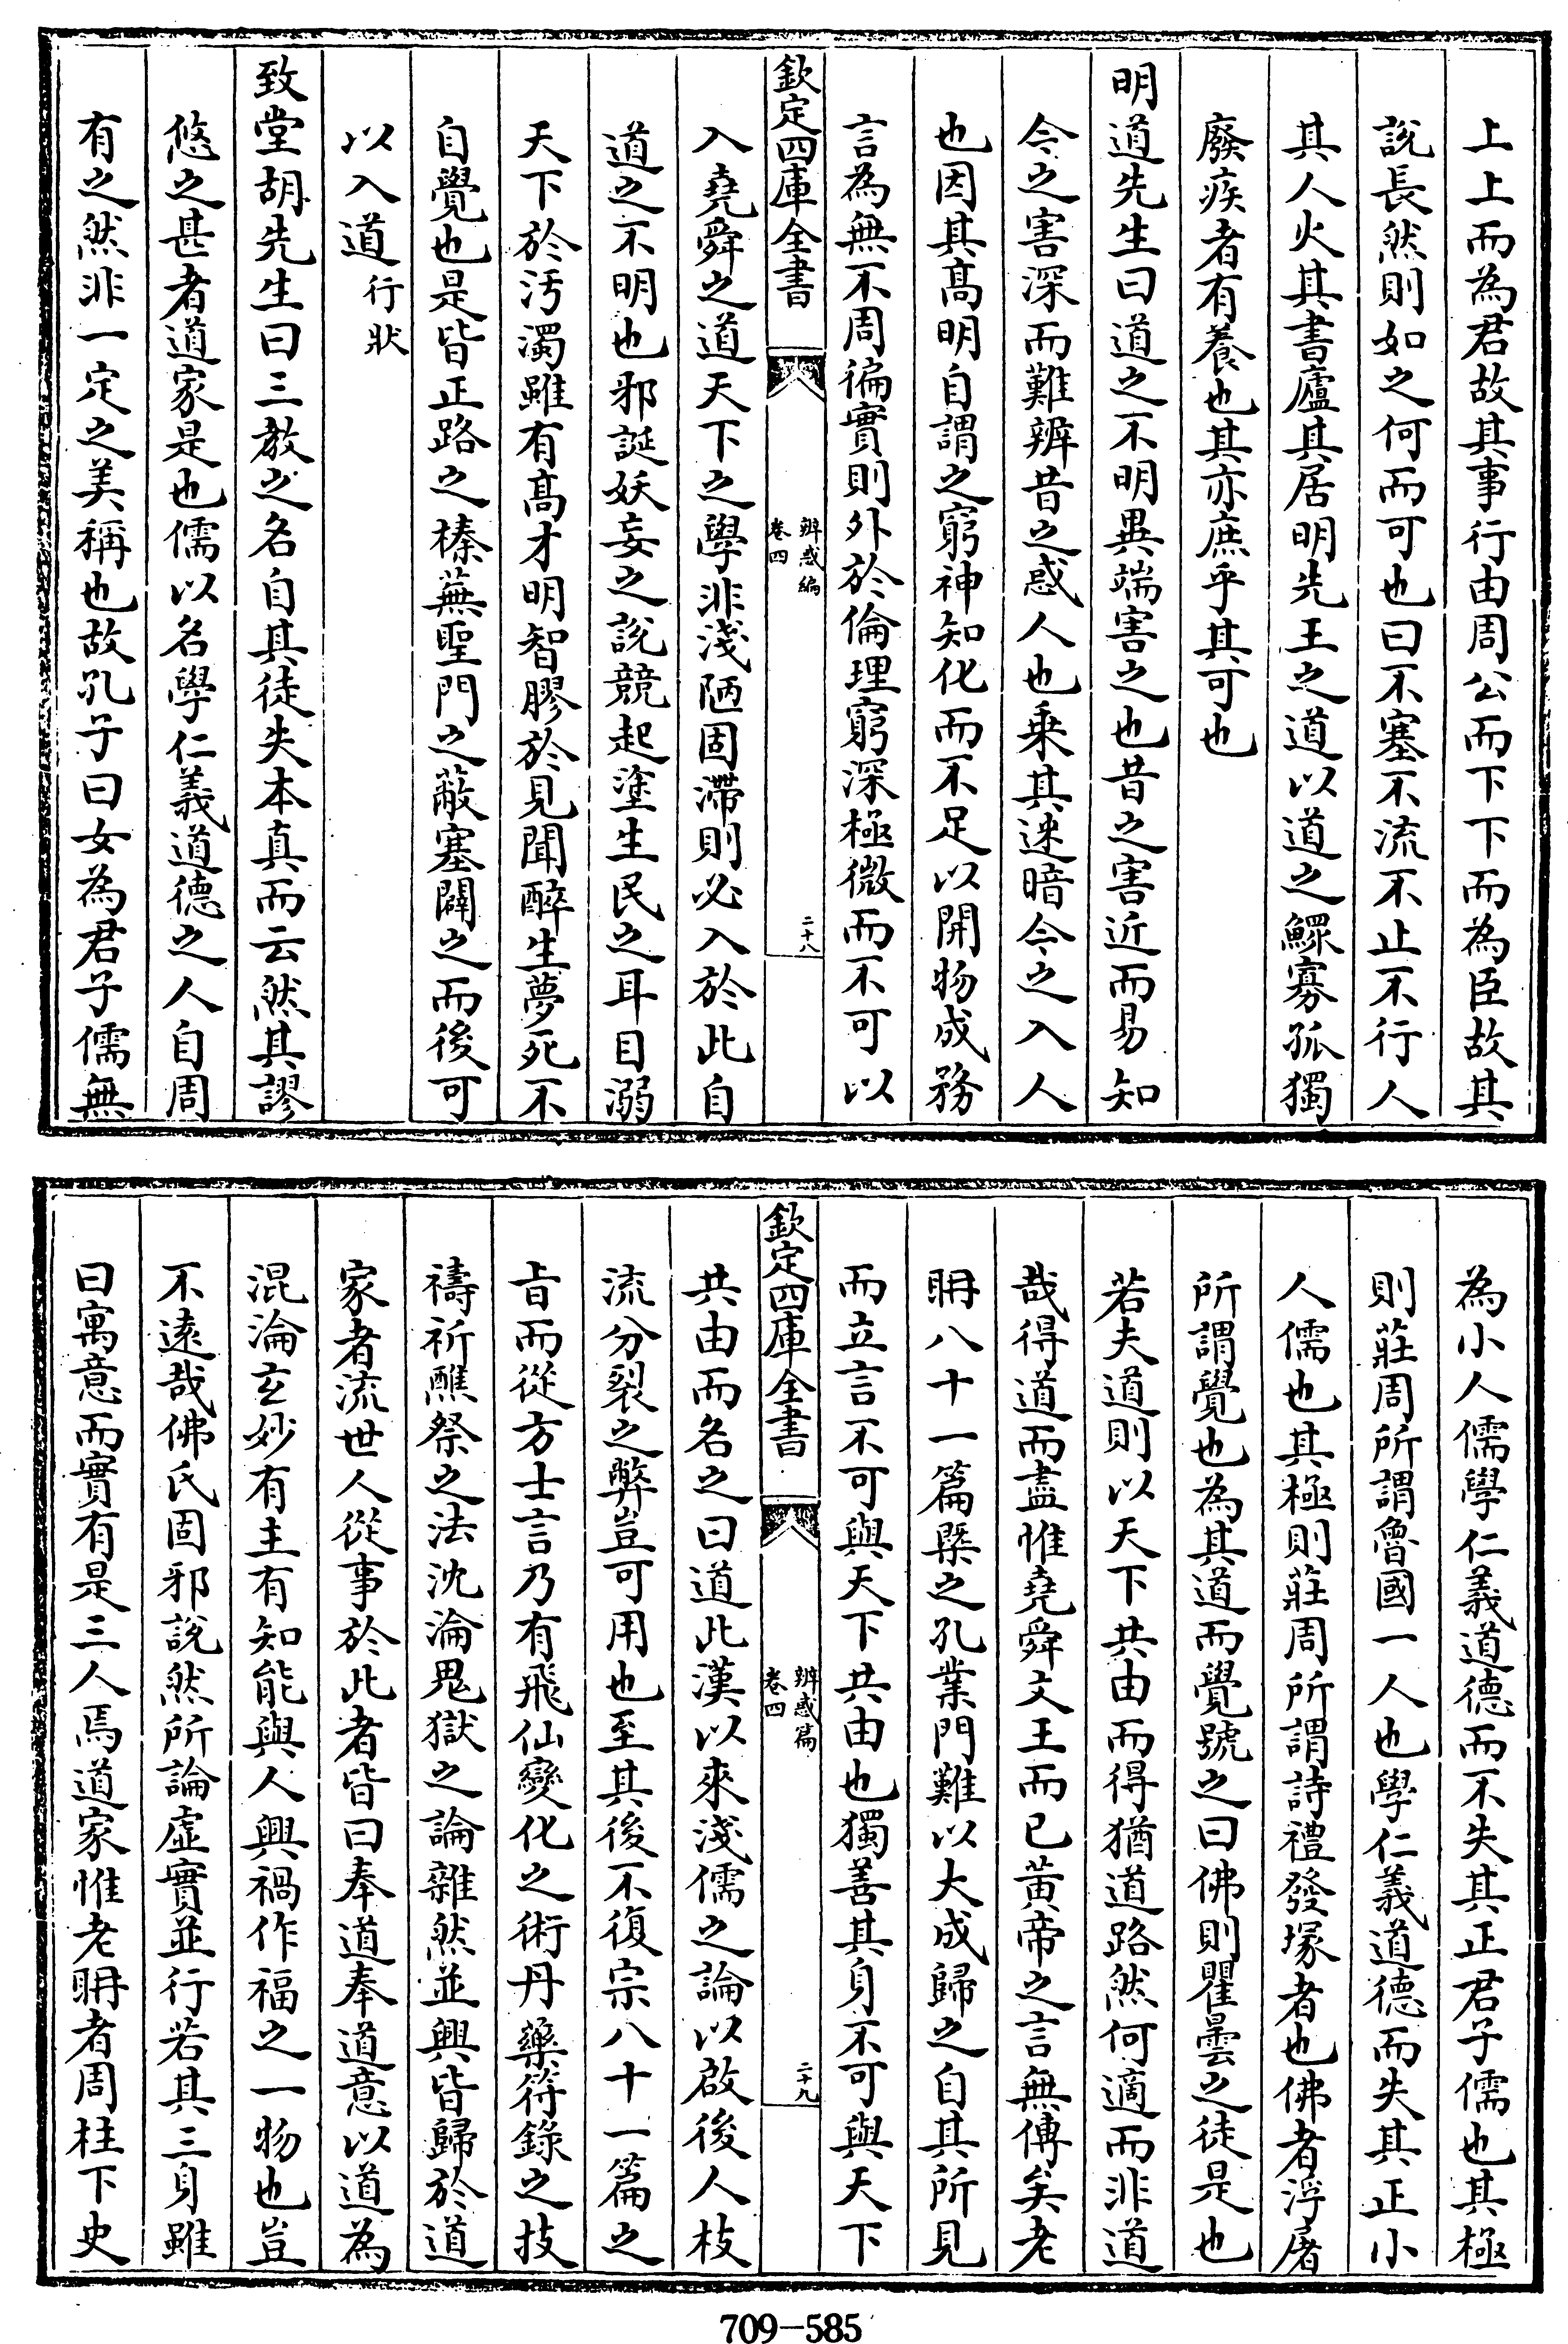 上上而為君故其事行由周公而下下而為臣故其
說長然則如之何而可也曰不塞不流不止不行人
其人火其書廬其居明先王之道以道之鰥寡孤獨
廢疾者有養也其亦庶乎其可也
明道先生曰道之不明異端害之也昔之害近而易知
今之害深而難辨昔之惑人也乗其迷暗今之入人
也因其髙明自謂之窮神知化而不足以開物成務
言為無不周徧實則外於倫理窮深極微而不可以
欽定四庫全書
辨惑編
卷四
二十八
入堯舜之道天下之學非淺陋固滯則必入於此自
道之不明也邪誕妖妄之說競起塗生民之耳目溺
天下於汚濁雖有髙才明智膠於見聞醉生夢死不
自覺也是皆正路之榛蕪聖門之蔽塞闢之而後可
以入道行狀
致堂胡先生曰三教之名自其徒失本真而云然其謬
悠之甚者道家是也儒以名學仁義道德之人自周
有之然非一定之美稱也故孔子曰女為君子儒無
為小人儒學仁義道德而不失其正君子儒也其極
則莊周所謂魯國一人也學仁義道德而失其正小
人儒也其極則莊周所謂詩禮發塚者也佛者浮屠
所謂覺也為其道而覺號之曰佛則瞿曇之徒是也
若夫道則以天下共由而得猶道路然何適而非道
哉得道而盡惟堯舜文王而已黄帝之言無傳矣老
耼八十一篇槩之孔業門難以大成歸之自其所見
而立言不可與天下共由也獨善其身不可與天下
欽定四庫全書
辨惑篇
卷四
二十九
共由而名之曰道此漢以來淺儒之論以啟後人枝
流分裂之弊豈可用也至其後不復宗八十一篇之
㫖而從方士言乃有飛仙變化之術丹藥符籙之技
禱祈醮祭之法沈淪鬼獄之論雜然並興皆歸於道
家者流世人從事於此者皆曰奉道奉道意以道為
混淪玄妙有主有知能與人興禍作福之一物也豈
不逺哉佛氏固邪說然所論虛實並行若其三身雖
曰寓意而實有是三人焉道家惟老耼者周柱下史
709-585